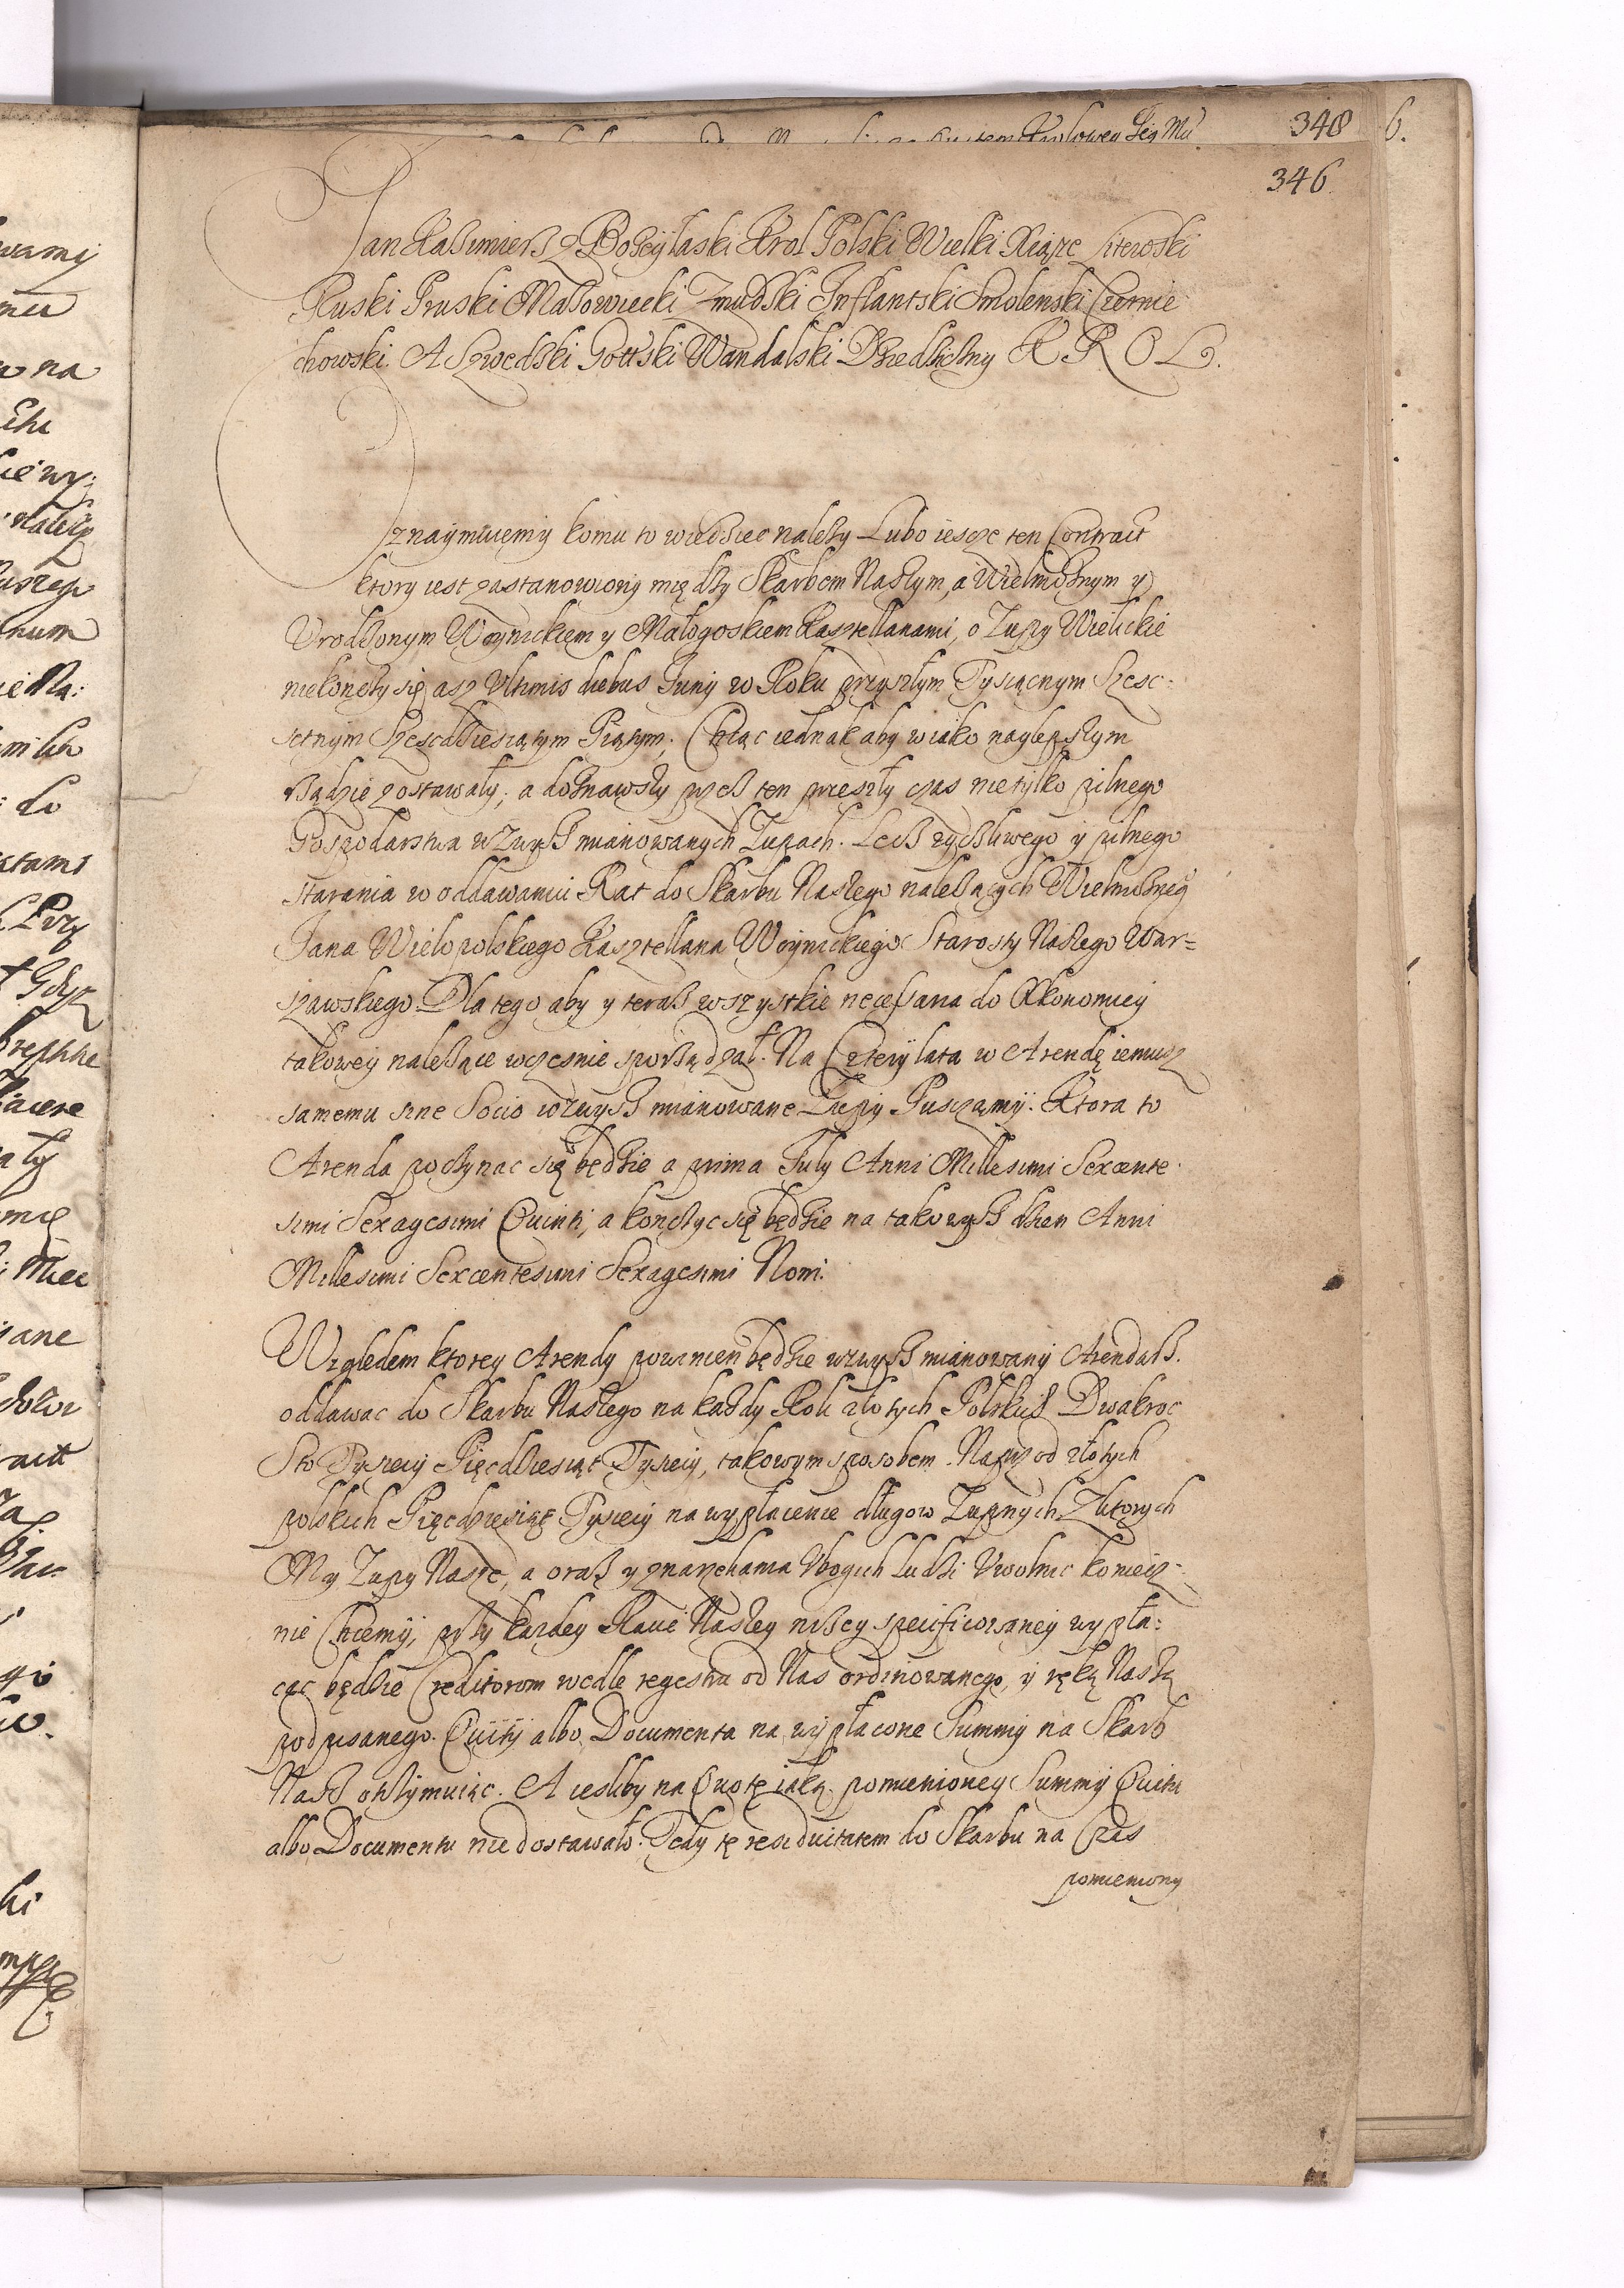 348
346
Jan Kaźimierz z Bożey łaski Krol Polski Wielki Xiąze Litewski
Ruski Pruski Mazowiecki Zmudzki Inflantski Smolenski Czernie
chowski. A Szwedzki Gottski Wandalski Dziedziczny KROL.
Oznaymuiemy komu to wiedziec nalezy Lubo ieszcze ten Contract
ktory iest zastanowiony między Skarbem Naszym, a Wielmożnym y
Urodzonym Woynickiem y Małogoskiem Kasztellanami, o Zupy Wielickie
niekonczy się asz Ultimis diebus Iuny w Roku przyszłym Tysiącnym Szesc:
setnym Szescdziesiątym Piątym. Chcąc iednak aby w iako naylepszym
rządzie zostawały, a doznawszy przez ten przeszły czas nie tylko pilnego
Gospodarstwa w zwysz mianowanych Zupach. Lecz zyczliwego y pilnego
starania w oddawaniu Rat do Skarbu Naszego należących Wielmożneg
Jana Wielopolskiego Kasztellana Woynickiego Starosty Naszego War=
szawskiego. Dla tego aby y teraz wszystkie necessaria do Oekonomiey
takowey należące wczesnie sporządzał. Na Cztery lata w Arendę iemusz
samemu sine Socio wzwysz mianowane Zupy Puszczamy. Ktora to
Arenda poczynac się będzie a prima July Anni Millesimi Sexcente
simi Sexagesimi Quinti, a konczyc się będzie na takowysz dzien Anni
Millesimi Sexcentesimi Sexagesimi Noni.
Względem ktorey Arendy powinien będzie wzwysz mianowany Arendarz.
oddawac do Skarbu Naszego na każdy Rok złotych Polskich Dwakroc
Sto Tysięcy Pięcdziesiąt Tysięcy, takowym sposobem. Naprzod złotych
polskich Pięcdziesiąt Tysięcy na wypłacenie długow Zupnych Z ktorych
My Zupy Nasze, a oraz y z narzekania Ubogich Ludzi Uwolnic koniecz-
nie Chcemy, przy kazdey Racie Naszey niżey specificowaney wypła:
cac będzie Creditorom wedle regestru od Nas ordinowanego, y ręką Naszą
podpisanego. Quity albo Documenta na wypłacone Summy na Skarb
Nasz otrzymuiąc. A iesliby na Quotę iaką pomienioney Summy Quitu
albo Documentu nie dostawało. Tedy tę residuitatem do Skarbu na Czas
pomieniony